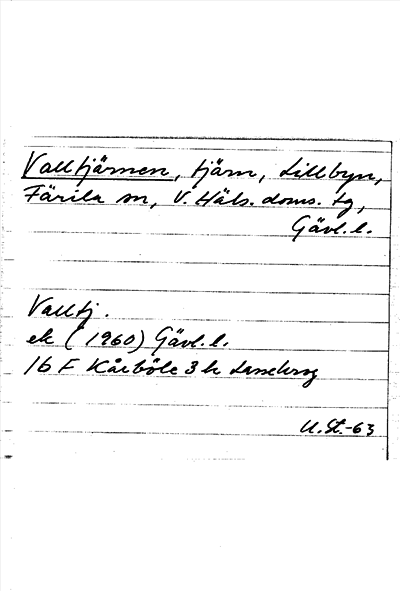 Valltjärnen, tjärn, Lillbyn,
Färila sn, V. Häls. doms. tg,
Gävl. l.
Valltj.
ek (1960) Gävl. l.
16 F Kårböle 3 h Lassekrog
U.St.-63